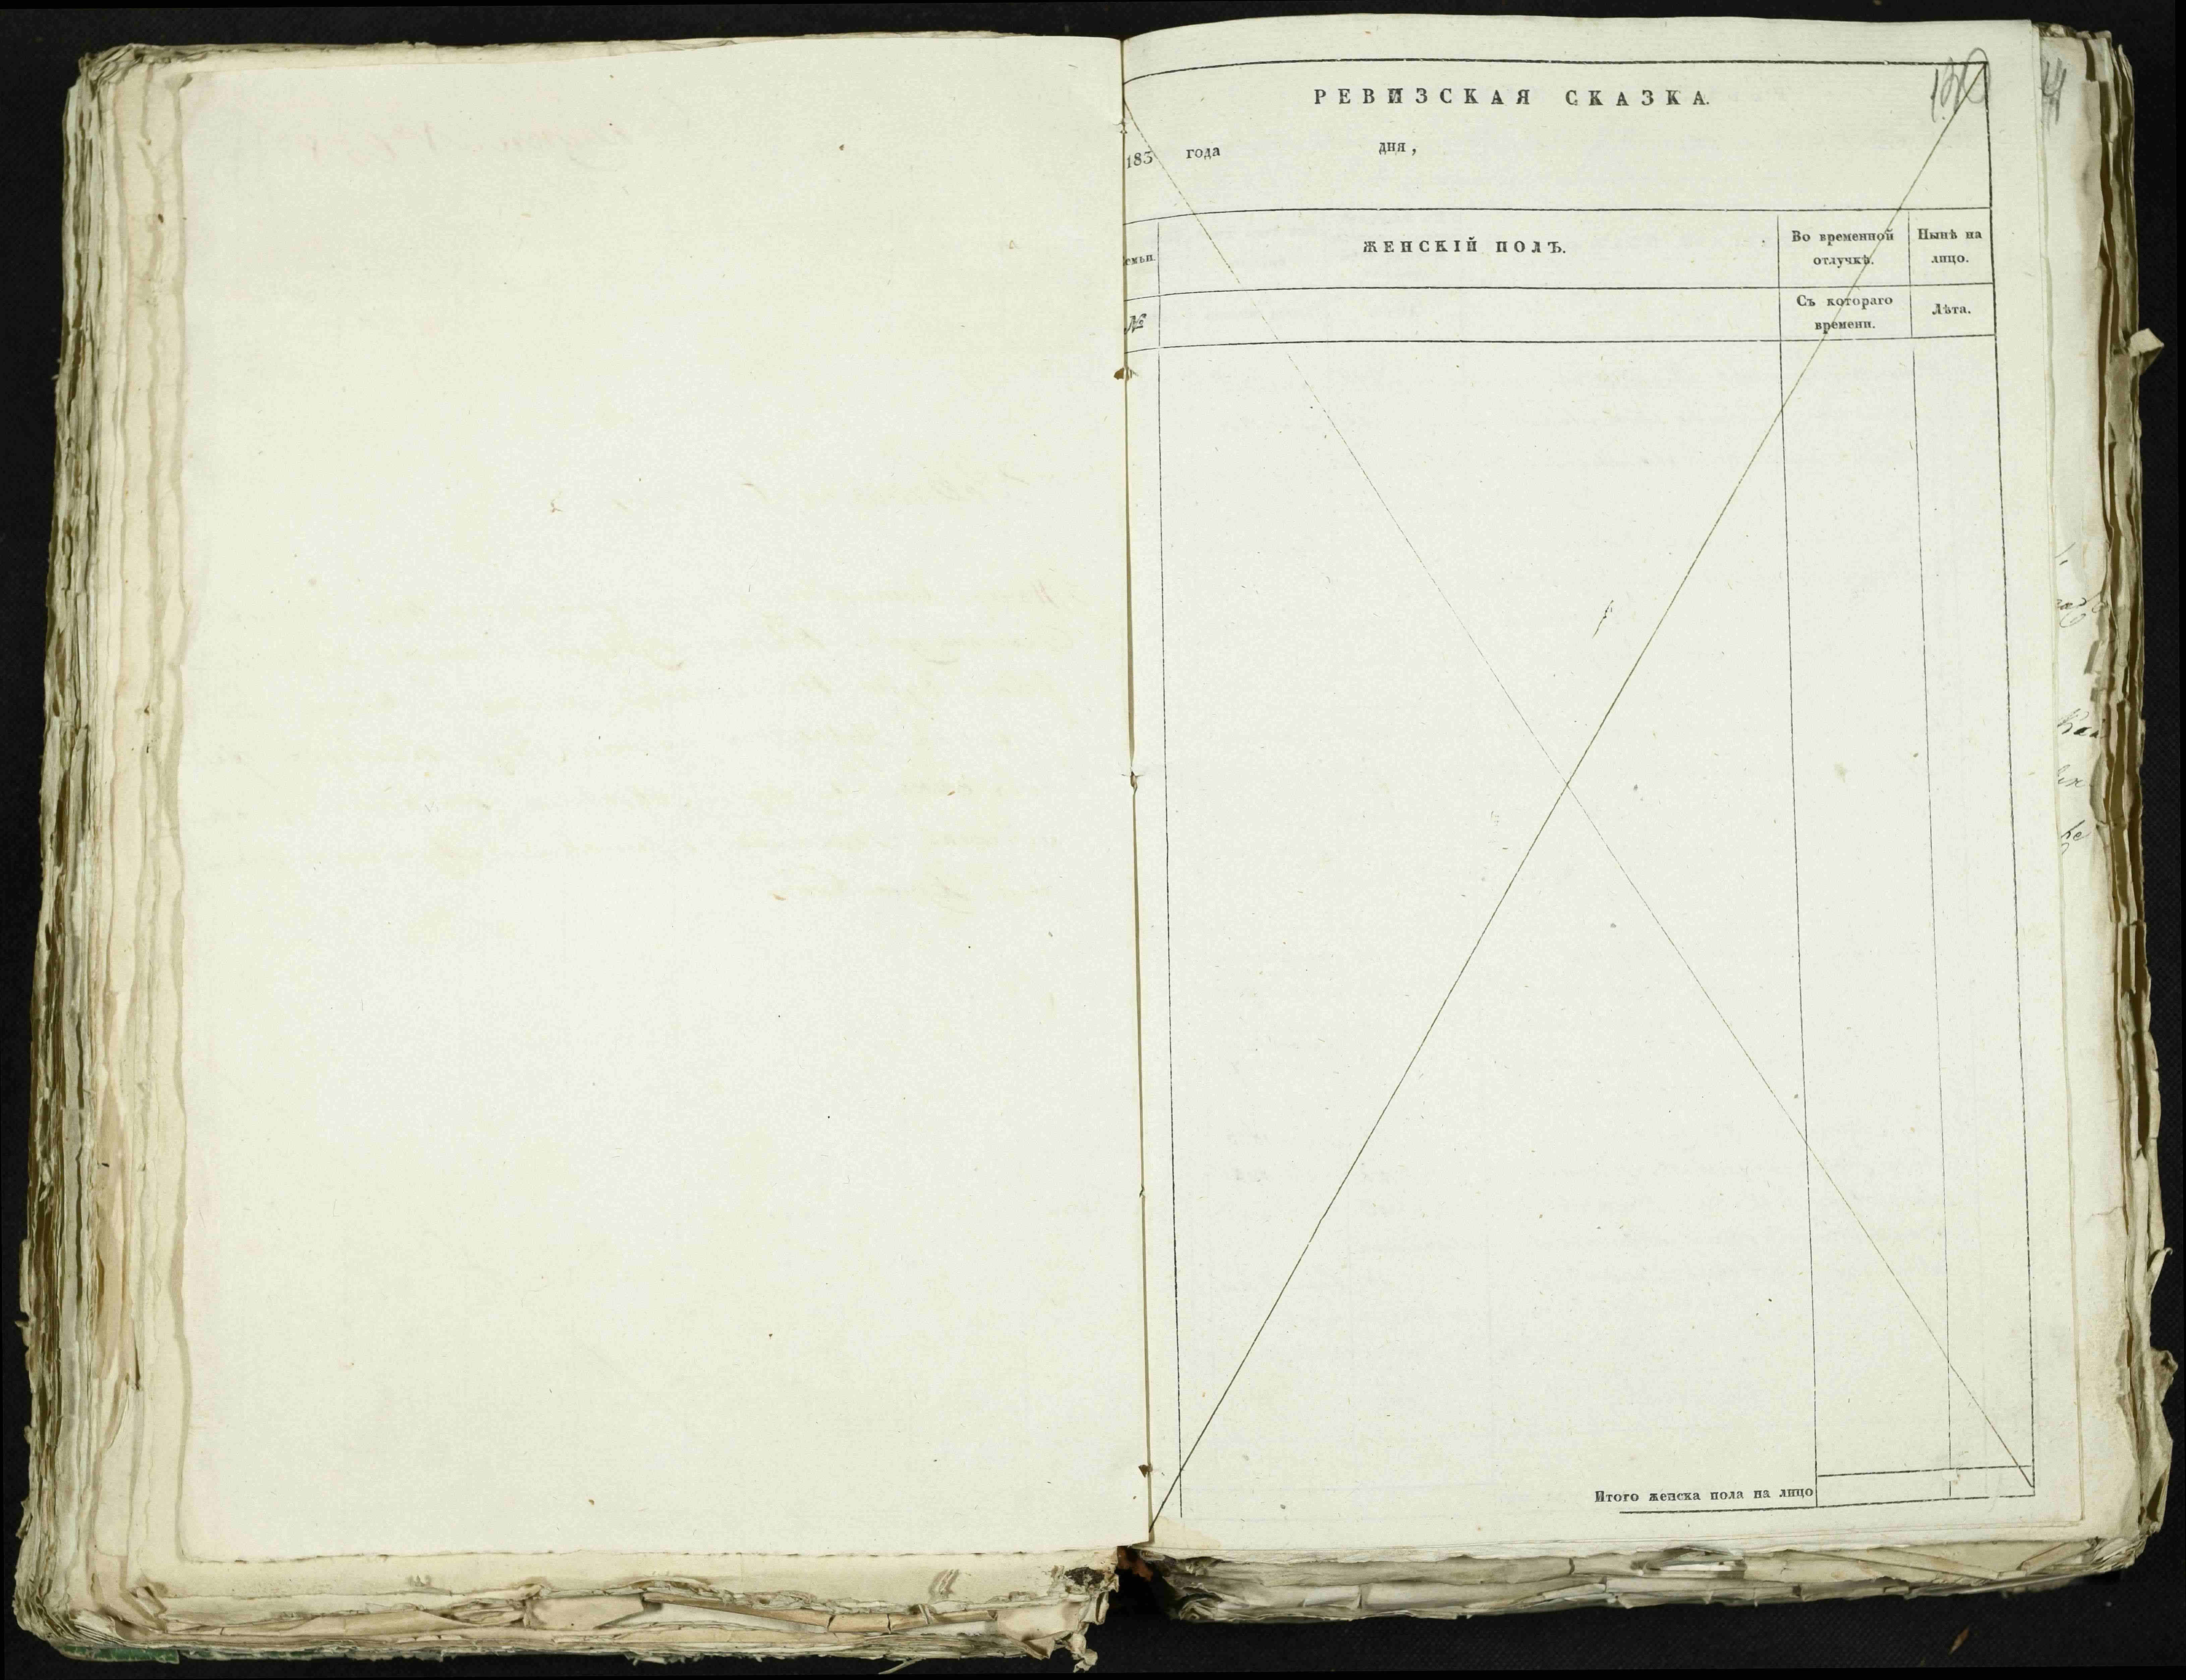 РЕВИЗСКАЯ СКАЗКА.
183 года дня,
емьи.
ЖЕНСКІЙ ПОЛЪ.
Во временной отлучкѣ.
Нынѣ на лицо.
№
Съ котораго времени.
Лѣта.
Итого женска пола на лицо